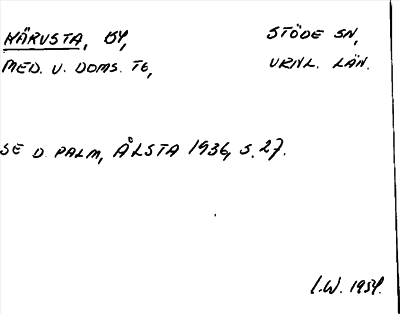 NÄRUSTA, BY, STÖDE SN,
MED. V. DOMS. TG, VRNL. LÄN.
SE D. PALM, ÅLSTA 1936, S. 27.
I.W. 1954.